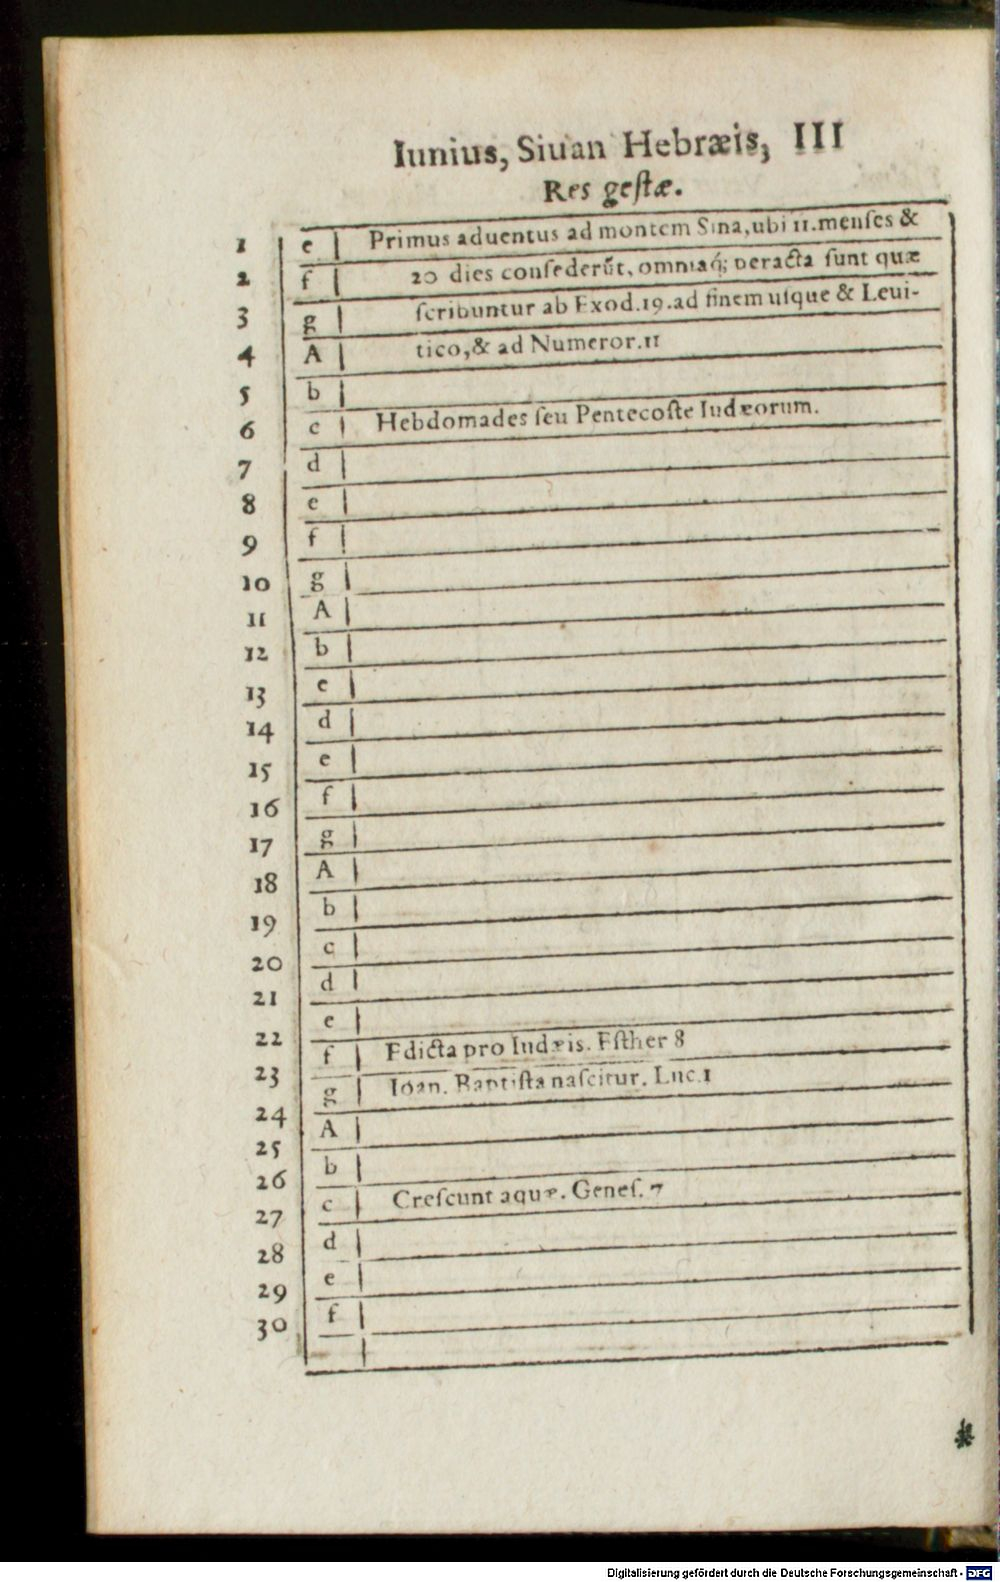 Iunius, Siuan Hebræis, III
Res gestæ.
1 e Primus aduentus ad montem Sina, ubi 11. menses &
2 f 20 dies consederūt, omniaq́; peracta sunt quæ
3 g scribuntur ab Exod. 19. ad finem usque & Leui-
4 A tico, & ad Numeror. 11
5 b
6 c Hebdomades seu Pentecoste Iudæorum.
7 d
8 e
9 f
10 g
11 A
12 b
13 c
14 d
15 e
16 f
17 g
18 A
19 b
20 c
21 d
22 e
23 f Edicta pro Iudæis. Esther 8
24 g Ioan. Baptista nascitur. Luc. 1
25 A
26 b
27 c Crescunt aquæ. Genes. 7
28 d
29 e
30 f
*
Digitalisierung gefördert durch die Deutsche Forschungsgemeinschaft - DFG